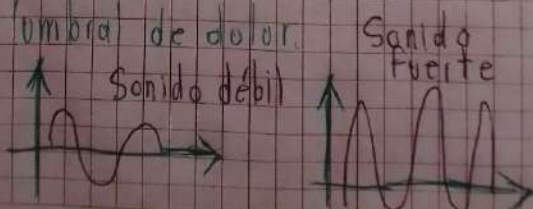 umbral de dolor.
Sonido débil
Sonido
fuerte